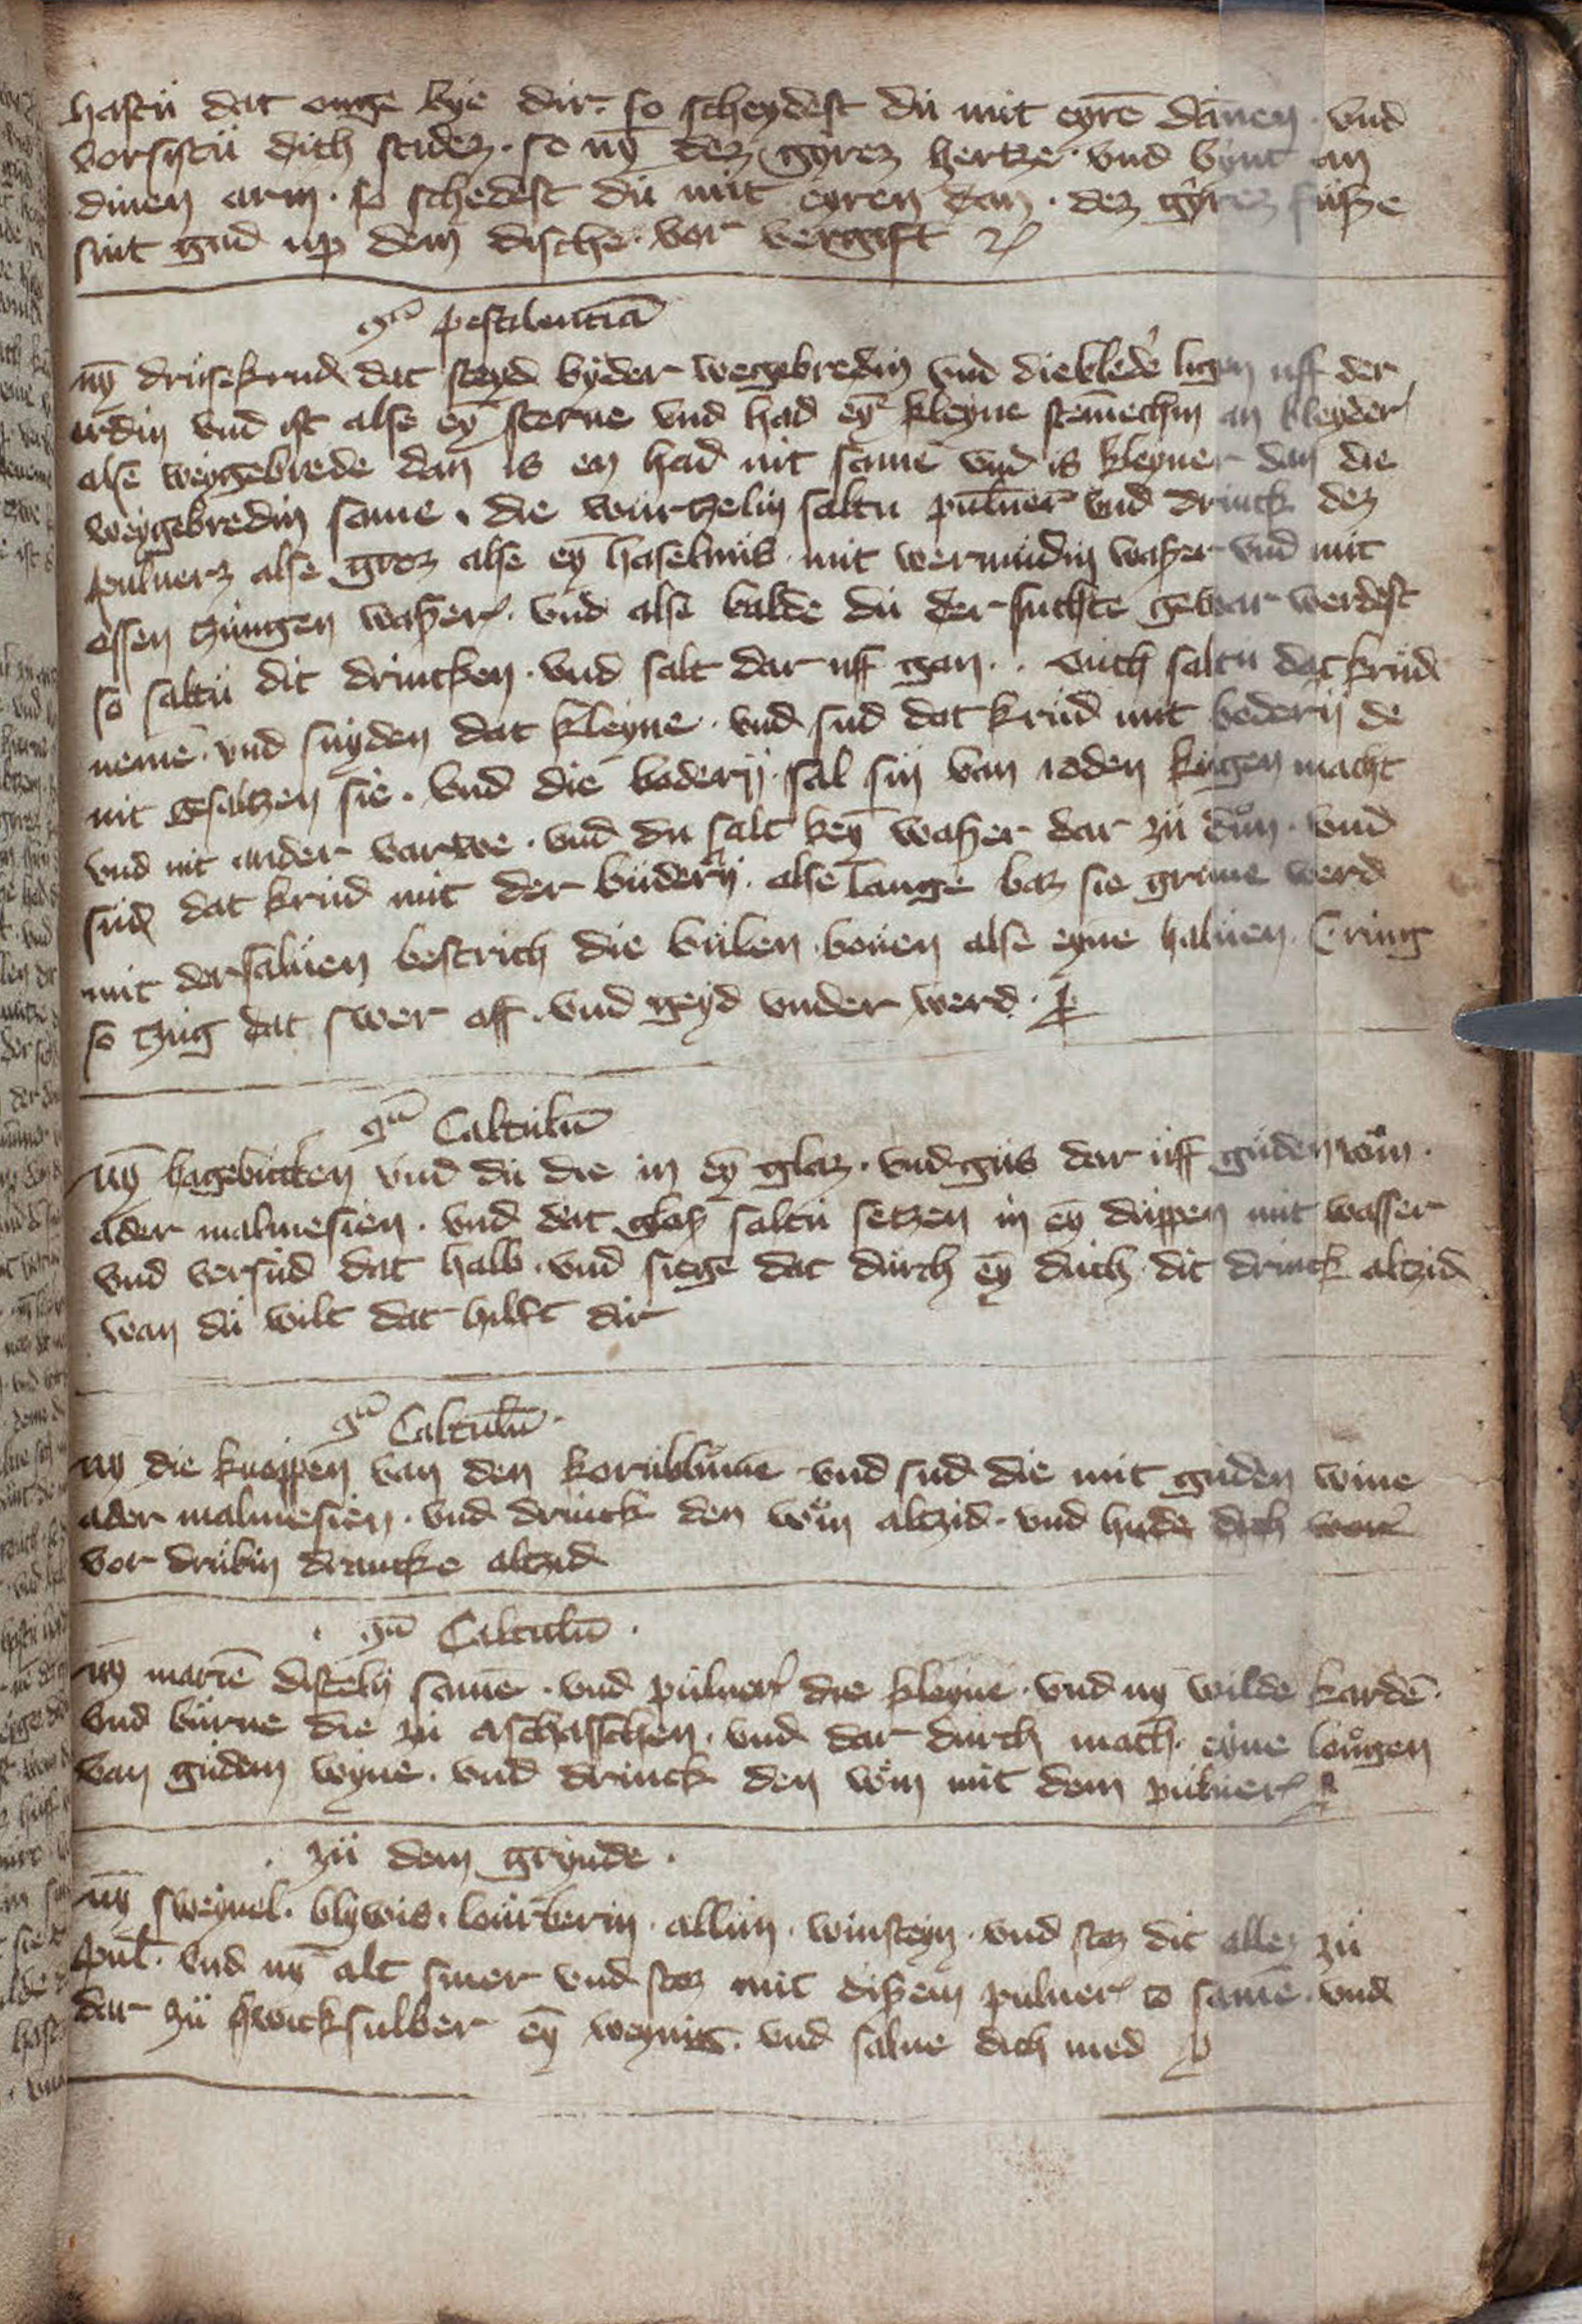 hastu dat ouge bye dir · so scheydest du mit eyrē dānen · vnd
vorsistu dich stridez · so nȳ dez gyrez hertze · vnd bynt an
dinen arm · so schedest du mit eyren dan · dez gyrez fuße
sint gud up dem dische · vor vergift
gͣ pestilentiā
nȳ drusekrud dat steyd byder wegebredin vnd die bleder ligen uff der
erdin vnd ist alse eȳ sterne vnd had eȳ kleyne stēmechin an kleyder
alse weygebrede dan is en had nit same vnd is kleyner dan die
weygebredin same · die wurtzelin saltu puluern vnd drinck dez
puluerz alse groz alse eȳ haselnus · mit wermudin waßer vnd mit
ossen zungen waßer · vnd alse balde du der suchte gewar werdest
so saltu dit drincken · vnd salt dar uff gan · ouch saltu dat krud
nemē · vnd snyden dat kleyne · vnd sud dat krud mit boderij de
nit gesaltzen sie · vnd die boderij sal sin van roden kugen macht
vnd nit ander varwe · vnd du salt keȳ waßer dar zu dun · vnd
sud dat krud mit der buderij · alse lange baz sie grune werd
mit der saluen bestrich die bulen bouen alse eyne haluen ring
so tzug dat swer aff · vnd geyd vnder werd ·
gͣ Calculū
nȳ hagebutten vnd du die in eȳ glaz · vnd gus dar uff guden win ·
ader maluesien · vnd dat glaß saltu setzen in eȳ duppen mit wasser
vnd versud dat halb · vnd siege dat durch eȳ duch dit drinck altzid
wan du wilt dat hilft dir
gͣ Calculū ·
nȳ die knoppen van den kornblumē vnd sud die mit guden wine
ader maluesien · vnd drinck den win altzid · vnd hude dich vor
vor drubin drancke altzid
· gͣ Calculū ·
nȳ mariē disteln samē · vnd puluer die kleyne · vnd nȳ wilde kardē ·
vnd burne die zu aschasschen · vnd dar durch mach eyne lougen
van gudem wyne · vnd drinck den win mit dem puluer
· zu dem grynde ·
nȳ sweyuel · blywis · lourberin · allun · winsteyn · vnd stoz dit allez zu
pul · vnd nȳ alt smer vnd stoz mit dißem puluer to samē · vnd
dar zu qwicksulber eȳ weynig · vnd salue dich med